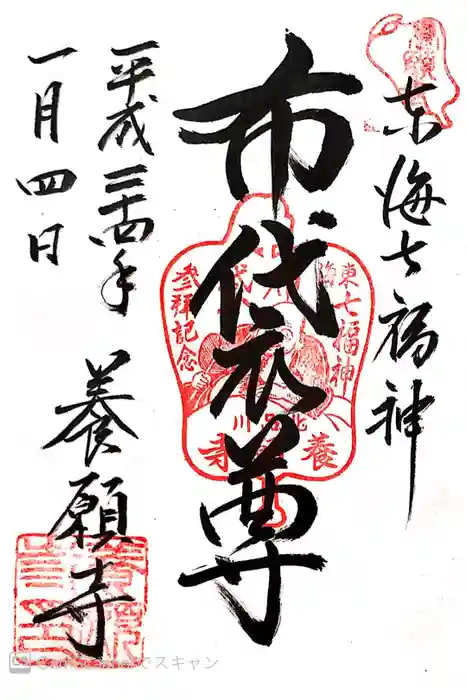 东海七福神
布袋尊
平成二十四年
一月四日
養願寺
東海七福神
參拜記念
北品川
養願寺
でスキャン